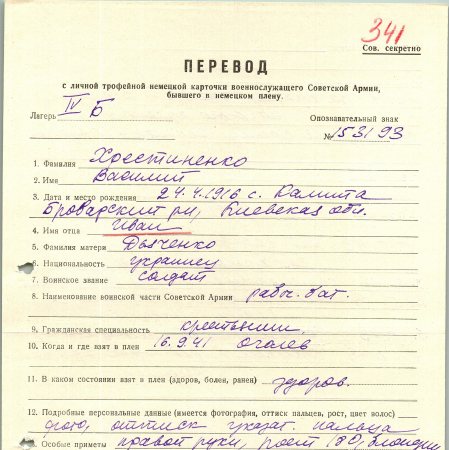 341
Сов. секретно
ПЕРЕВОД
с личной трофейной немецкой карточки военнослужащего Советской Армии,
бывшего в немецком плену.
Лагерь IV Б
Опознавательный знак
№ 153193
1. Фамилия Хрестиненко
2. Имя Василий
3. Дата и место рождения 24.4.1916 с. Калита
Броварский р-н, Киевская обл.
4. Имя отца Иван
5. Фамилия матери Дьяченко
6. Национальность украинец
7. Воинское звание солдат
8. Наименование воинской части Советской Армии рабоч. бат.
9. Гражданская специальность крестьянин
10. Когда и где взят в плен 16.9.41
11. В каком состоянии взят в плен (здоров, болен, ранен) здоров.
12. Подробные персональные данные (имеется фотография, оттиск пальцев, рост, цвет волос)
фото, оттиск указат. пальца
Особые приметы правой руки, рост 180, блондин